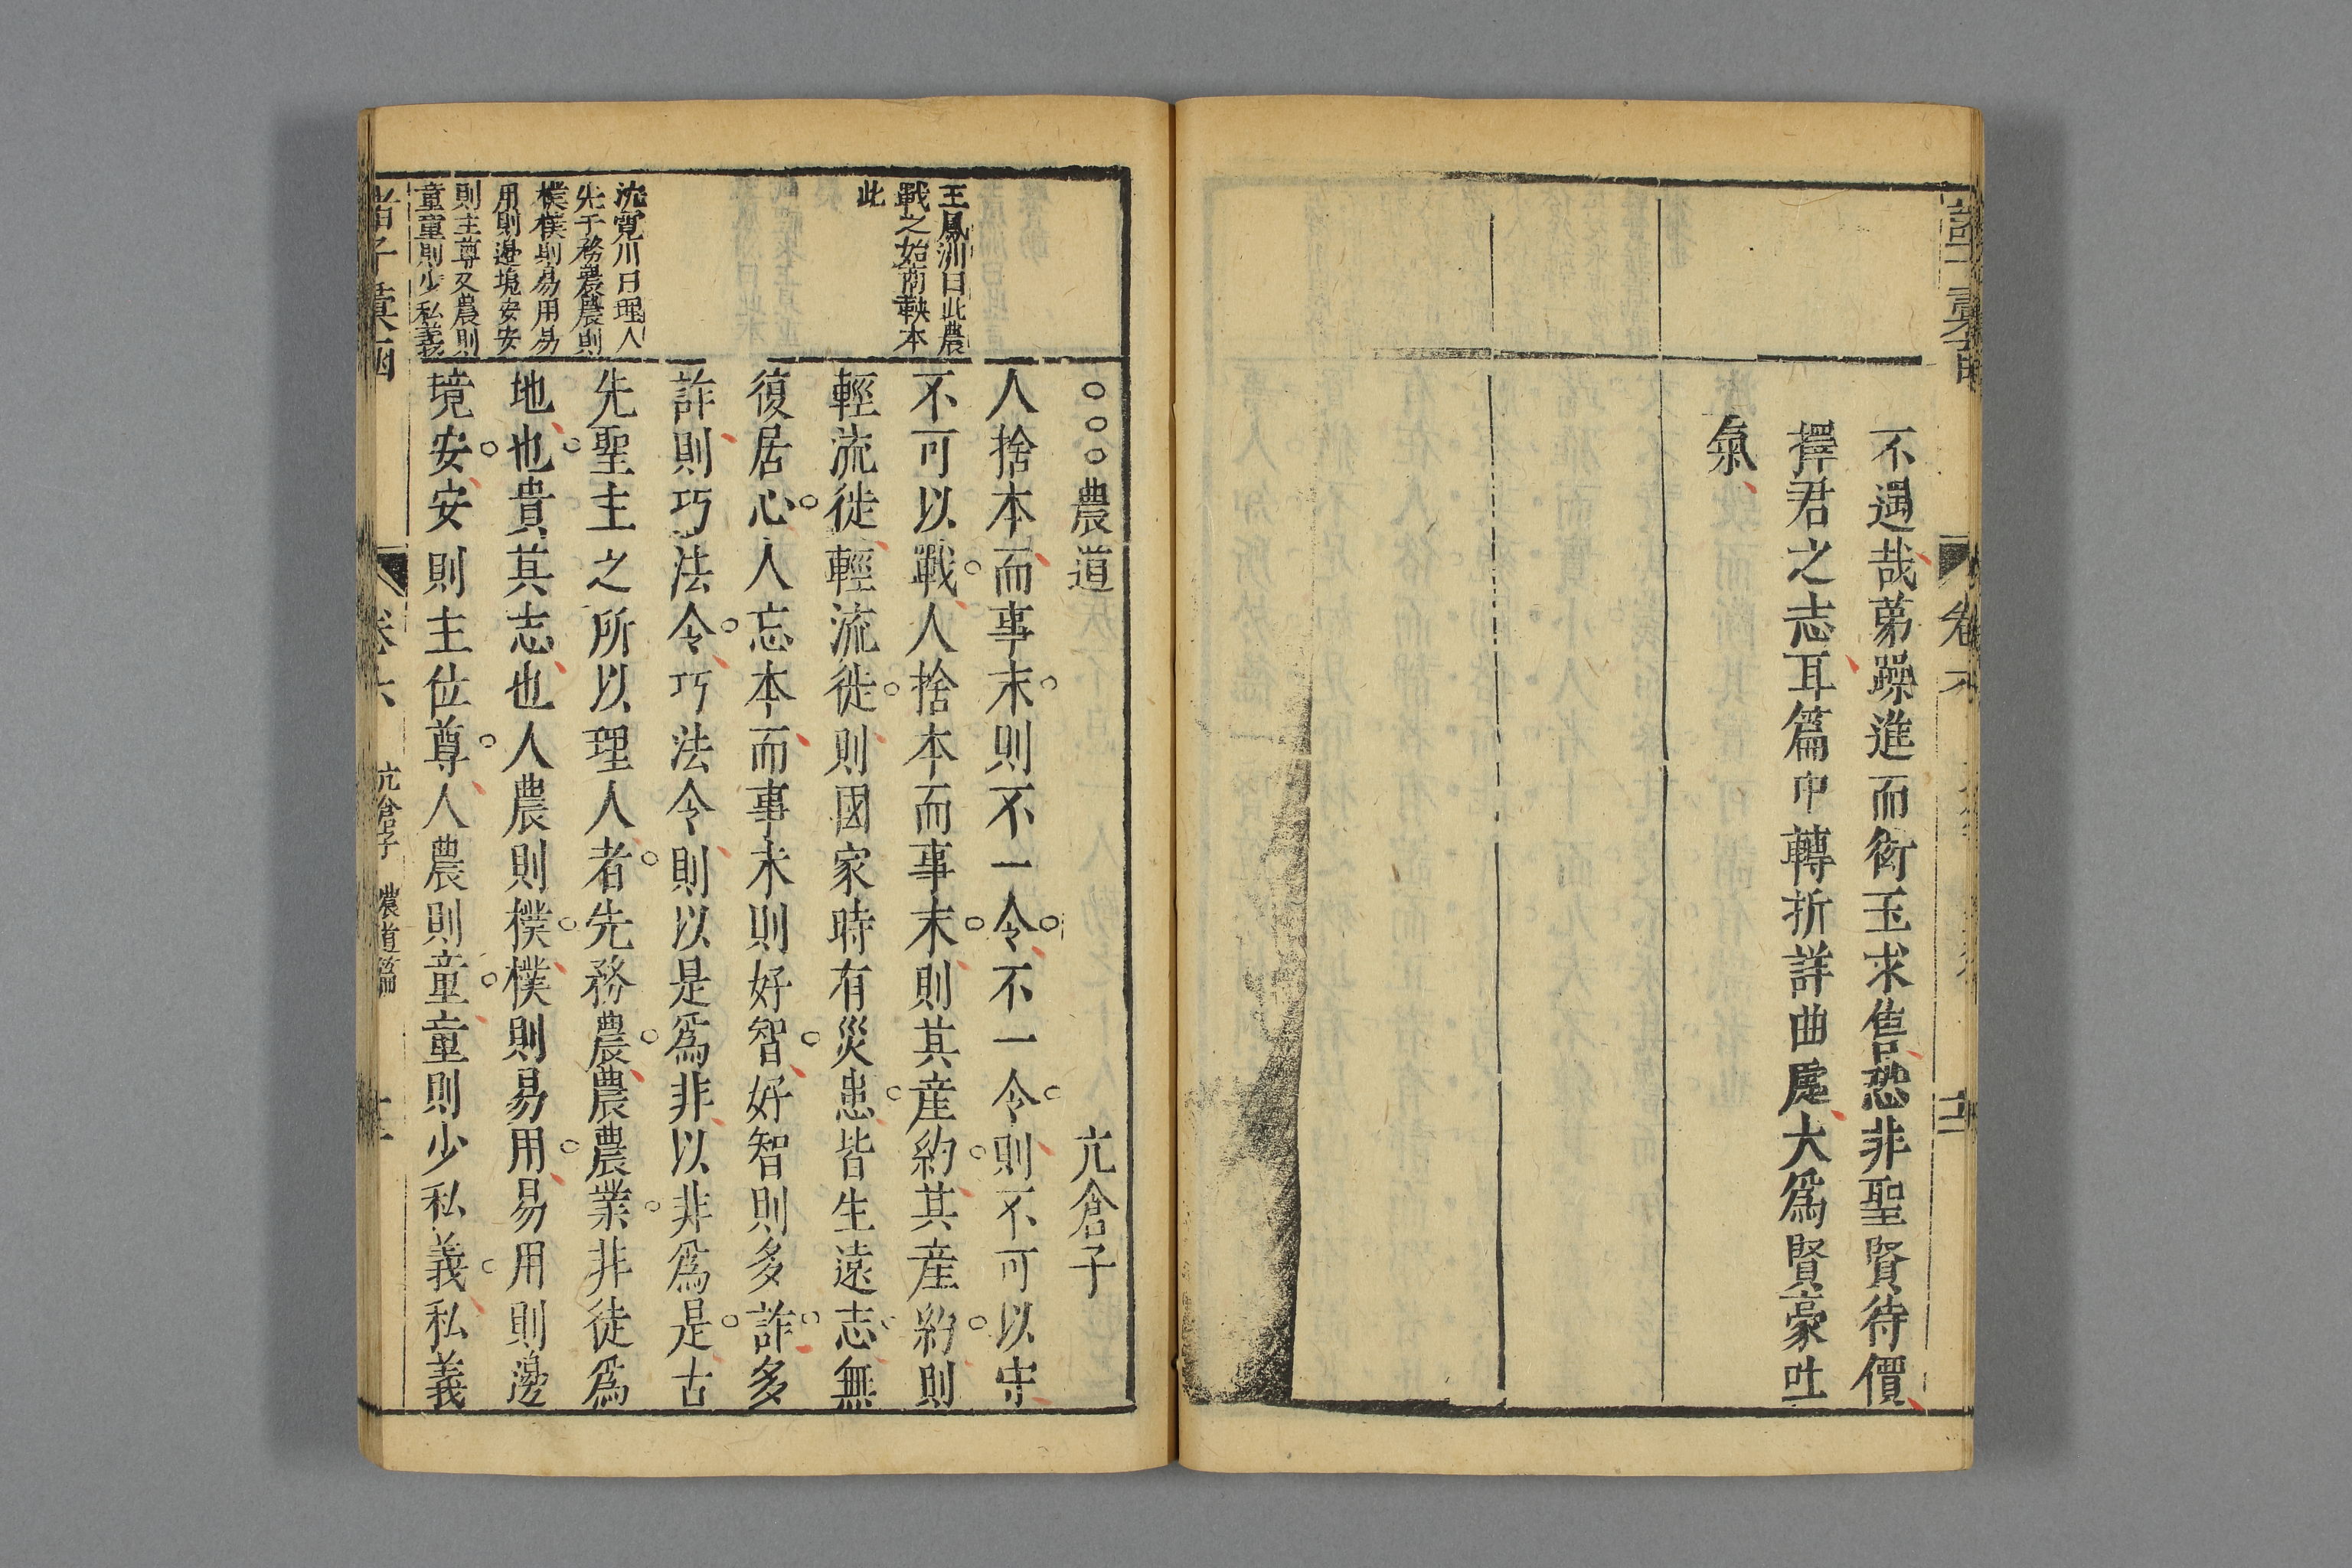 不遇哉苐躁進而衒玉求售恐非聖賢待價
擇君之志耳篇中轉折詳曲處大為賢豪吐
氣
農道 亢倉子
人捨本而事末則不一令不一令則不可以守
不可以戰人捨本而事末則其産約其産約則
輕流徙輕流徙則國家時有災患皆生遠志無
復居心人忘本而事末則好智好智則多詐多
詐則巧法令巧法令則以是爲非以非爲是古
先聖主之所以理人者先務農農農業非徒爲
地也貴其志也人農則樸樸則易用易用則邊
境安安則主位尊人農則童童則少私義私義
王鳳洲曰此農
戰之始商鞅本
此
沈寛川曰理人
先于務農農則
樸樸則易用易
用則邊境安安
則主尊又農則
童童則少私義
卷六
亢倉子 農道篇